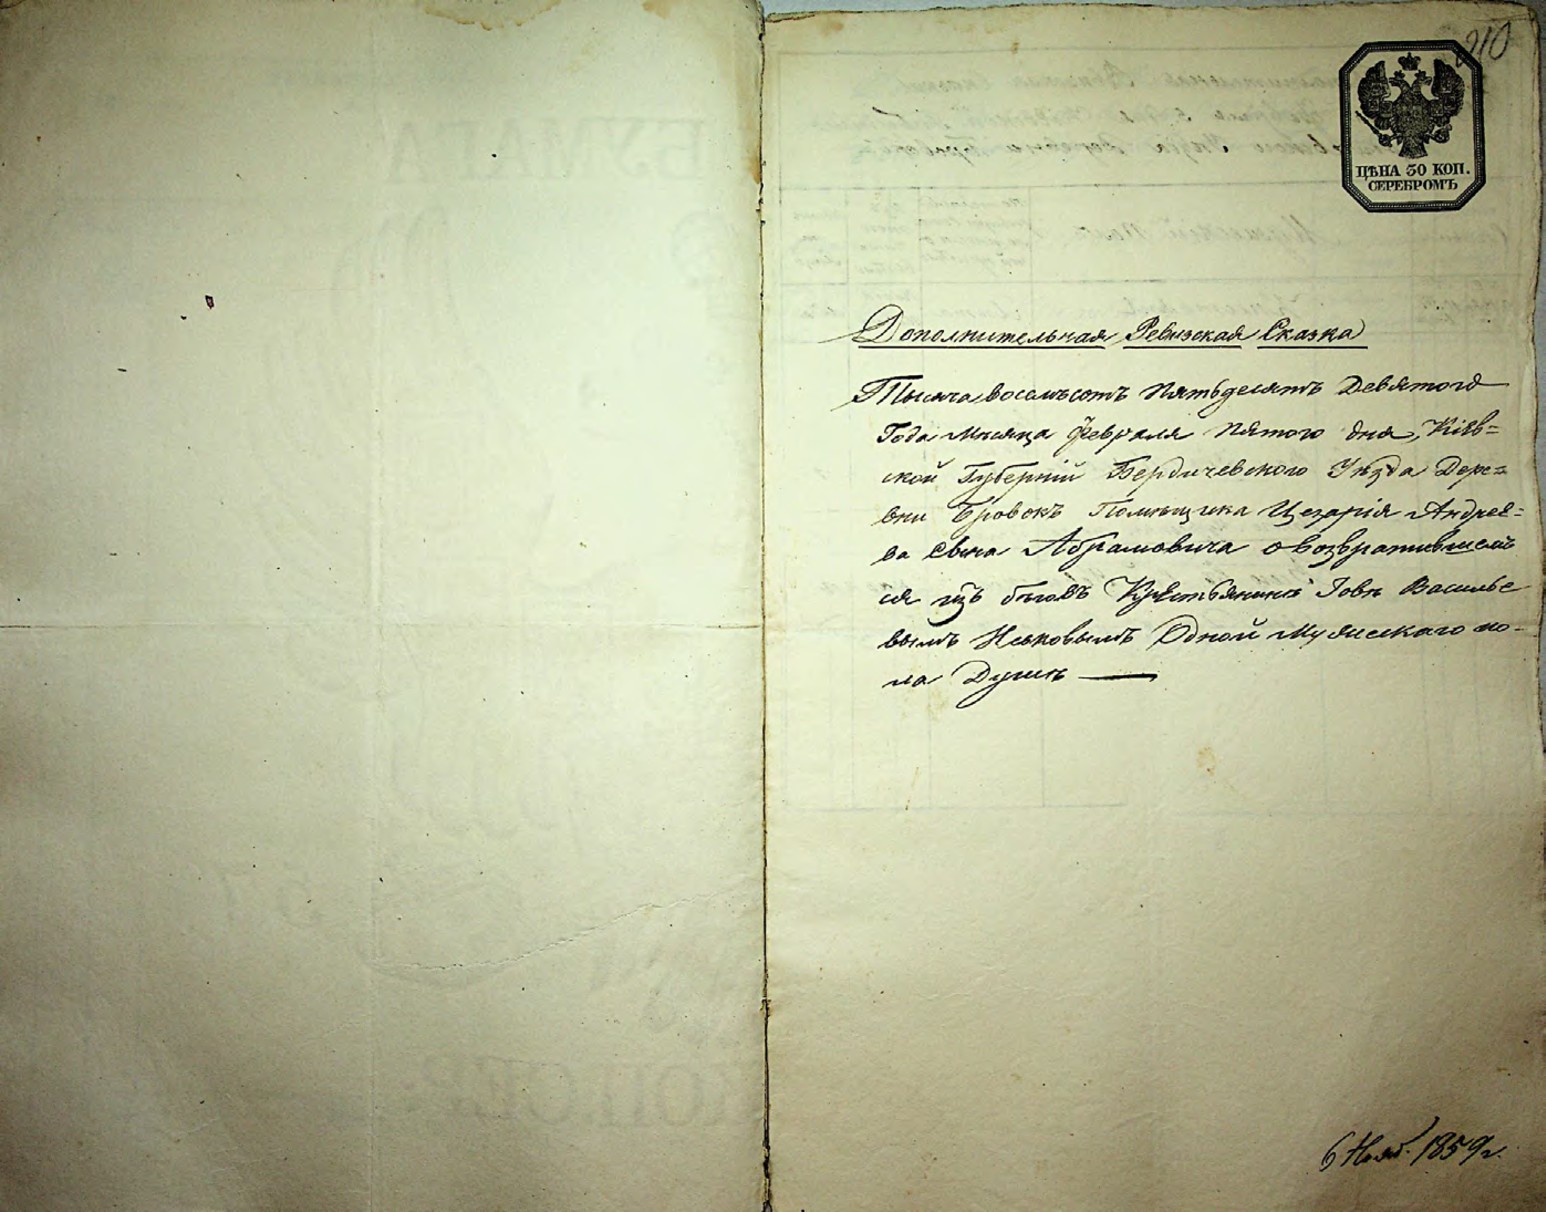 210
ЦѢНА 30 КОП.
СЕРЕБРОМЪ
Дополнительная Ревизская Сказка
Тысяча восемьсотъ Пятьдесятъ Девятого
Года Мѣсяца Февраля Пятого дня, Кіев=
ской Губерніи Бердичевского Уѣзда Дере=
вни Бровокъ Помѣщика Цезарія Андрее=
ва Сына Абрамовича о возвратившем
ся изъ бѣговъ Крестьянинѣ Іовѣ Василье
вымъ Одной Мужескаго по-
ла Души —
6 Нояб. 1859 г.